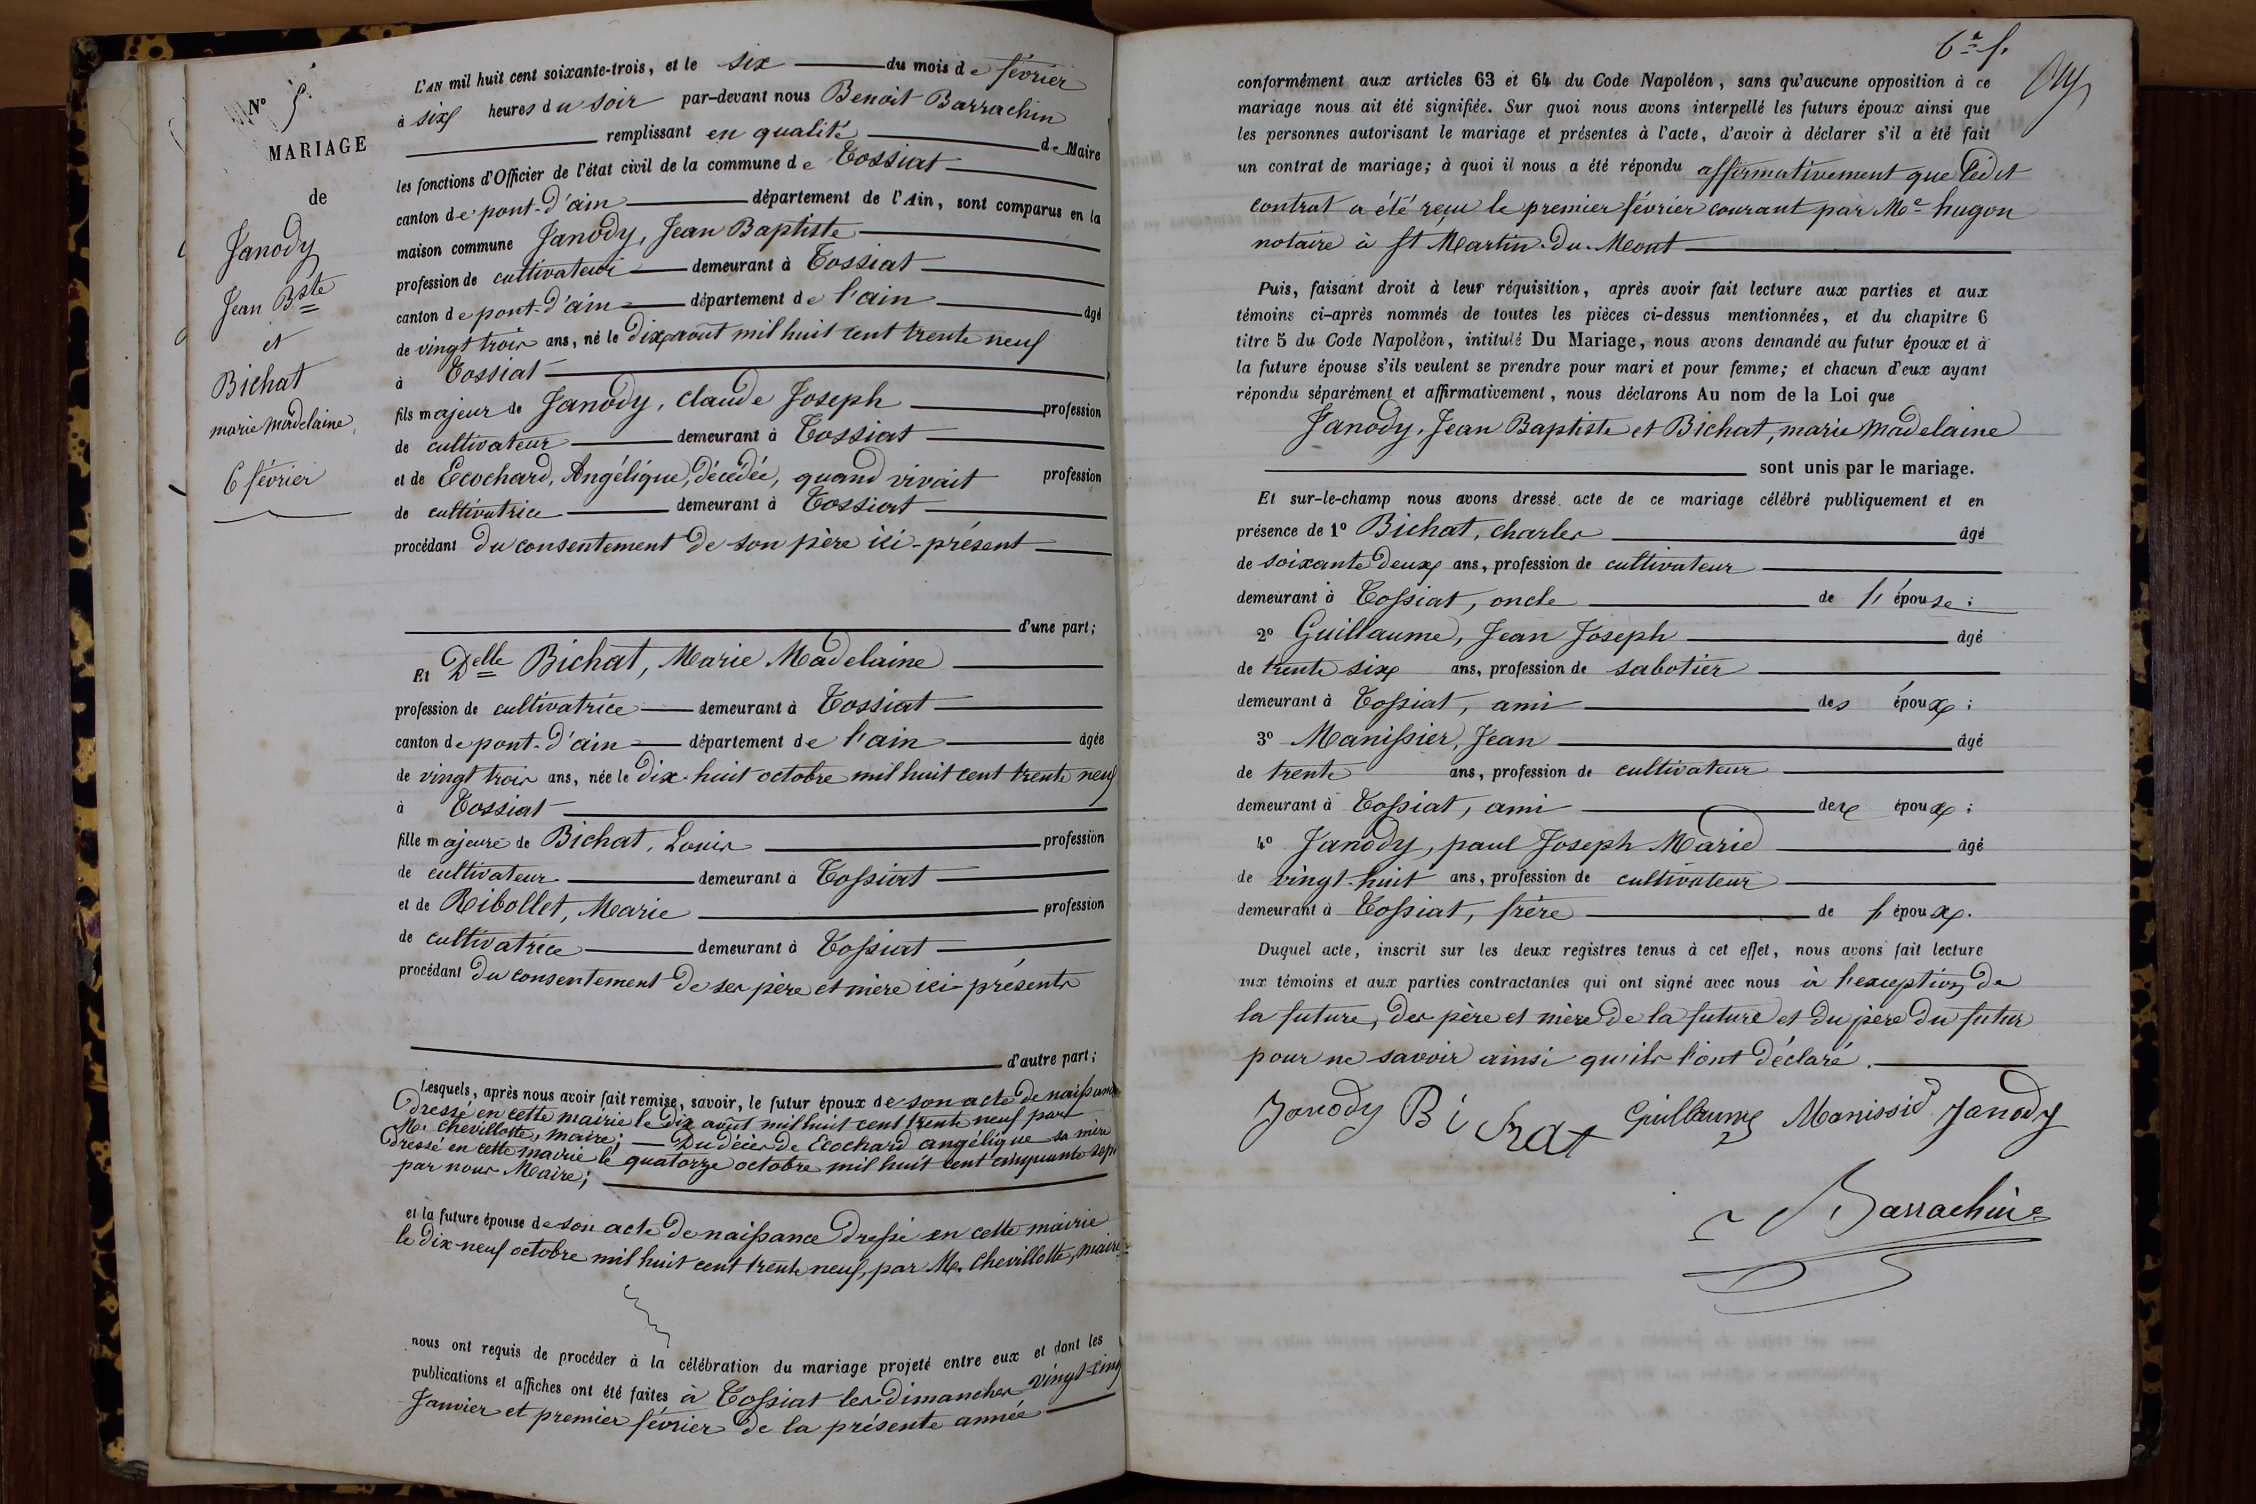 N° 5
MARIAGE
de
Janody
Jean Bste
et
Bichat
marie madelaine
6 février
L'AN mil huit cent soixante-trois, et le six du mois de février
à six heures du soir par-devant nous Benoit Barrachin
remplissant en qualité de Maire
les fonctions d'Officier de l'état civil de la commune de Tossiat
canton de pont-d'ain département de l'Ain, sont comparus en la
maison commune Janody, Jean Baptiste
profession de cultivateur demeurant à Tossiat
canton de pont-d'ain département de l'ain âgé
de vingt trois ans, né le dix août mil huit cent trente neuf
à Tossiat
fils majeur de Janody, claude Joseph profession
de cultivateur demeurant à Tossiat
et de Ecochard, Angélique, décédée, quand vivait profession
de cultivatrice demeurant à Tossiat
procédant du consentement de son père ici-présent
d'une part;
Et Delle Bichat, Marie Madelaine
profession de cultivatrice demeurant à Tossiat
canton de pont-d'ain département de l'ain âgée
de vingt trois ans, née le dix-huit octobre mil huit cent trente neuf
à Tossiat
fille majeure de Bichat, Louis profession
de cultivateur demeurant à Tossiat
et de Ribollet, Marie profession
de cultivatrice demeurant à Tossiat
procédant du consentement de ses père et mère ici présents
d'autre part;
Lesquels, après nous avoir fait remise, savoir, le futur époux de son acte de naissance
dressé en cette mairie le dix août mil huit cent trente neuf par
M. Chevillotte, maire; Du décès de Ecochard angélique sa mère
dressé en cette mairie le quatorze octobre mil huit cent cinquante sept
par nous Maire;
et la future épouse de son acte de naissance dressé en cette mairie
le dix-neuf octobre mil huit cent trente neuf, par M. Chevillotte, maire
nous ont requis de procéder à la célébration du mariage projeté entre eux et dont les
publications et affiches ont été faites à Tossiat les dimanches vingt-cinq
Janvier et premier février de la présente année
6e f.
conformément aux articles 63 et 64 du Code Napoléon, sans qu'aucune opposition à ce
mariage nous ait été signifiée. Sur quoi nous avons interpellé les futurs époux ainsi que
les personnes autorisant le mariage et présentes à l'acte, d'avoir à déclarer s'il a été fait
un contrat de mariage; à quoi il nous a été répondu affirmativement que ledit
contrat a été reçu le premier février courant par Me hugon
notaire à St Martin-du-Mont
Puis, faisant droit à leur réquisition, après avoir fait lecture aux parties et aux
témoins ci-après nommés de toutes les pièces ci-dessus mentionnées, et du chapitre 6
titre 5 du Code Napoléon, intitulé Du Mariage, nous avons demandé au futur époux et à
la future épouse s'ils veulent se prendre pour mari et pour femme; et chacun d'eux ayant
répondu séparément et affirmativement, nous déclarons Au nom de la Loi que
Janody, Jean Baptiste et Bichat, marie madelaine
sont unis par le mariage.
Et sur-le-champ nous avons dressé acte de ce mariage célébré publiquement et en
présence de 1° Bichat, charles âgé
de soixante deux ans, profession de cultivateur
demeurant à Tossiat, oncle de l'épouse;
2° Guillaume, Jean Joseph âgé
de trente six ans, profession de sabotier
demeurant à Tossiat, ami des époux;
3° Manissier, Jean âgé
de trente ans, profession de cultivateur
demeurant à Tossiat, ami des époux;
4° Janody, paul Joseph Marie âgé
de vingt-huit ans, profession de cultivateur
demeurant à Tossiat, frère de l'époux.
Duquel acte, inscrit sur les deux registres tenus à cet effet, nous avons fait lecture
aux témoins et aux parties contractantes qui ont signé avec nous à l'exception de
la future, des père et mère de la future et du père du futur
pour ne savoir ainsi qu'ils l'ont déclaré.
Janody Bichat Guillaume Manissié Janody
Barrachin